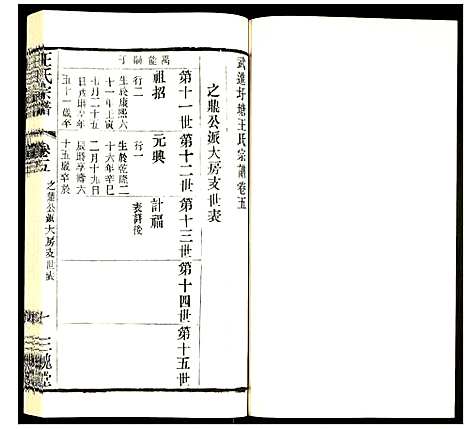 武進圩塘王氏宗譜卷五
之鼎公派大房支世表
第十一世 第十二世 第十三世 第十四世 第十五世
萬能嗣子
祖招 元興 計福
行二 行一 表詳後
生於康熙六 生於乾隆二
十一年壬寅 十六年辛巳
十月二十五 二月十九日
辰時享
五十一歲卒 十五歲卒於
王氏宗譜
卷五
之鼎公派大房支世表
十
三槐堂